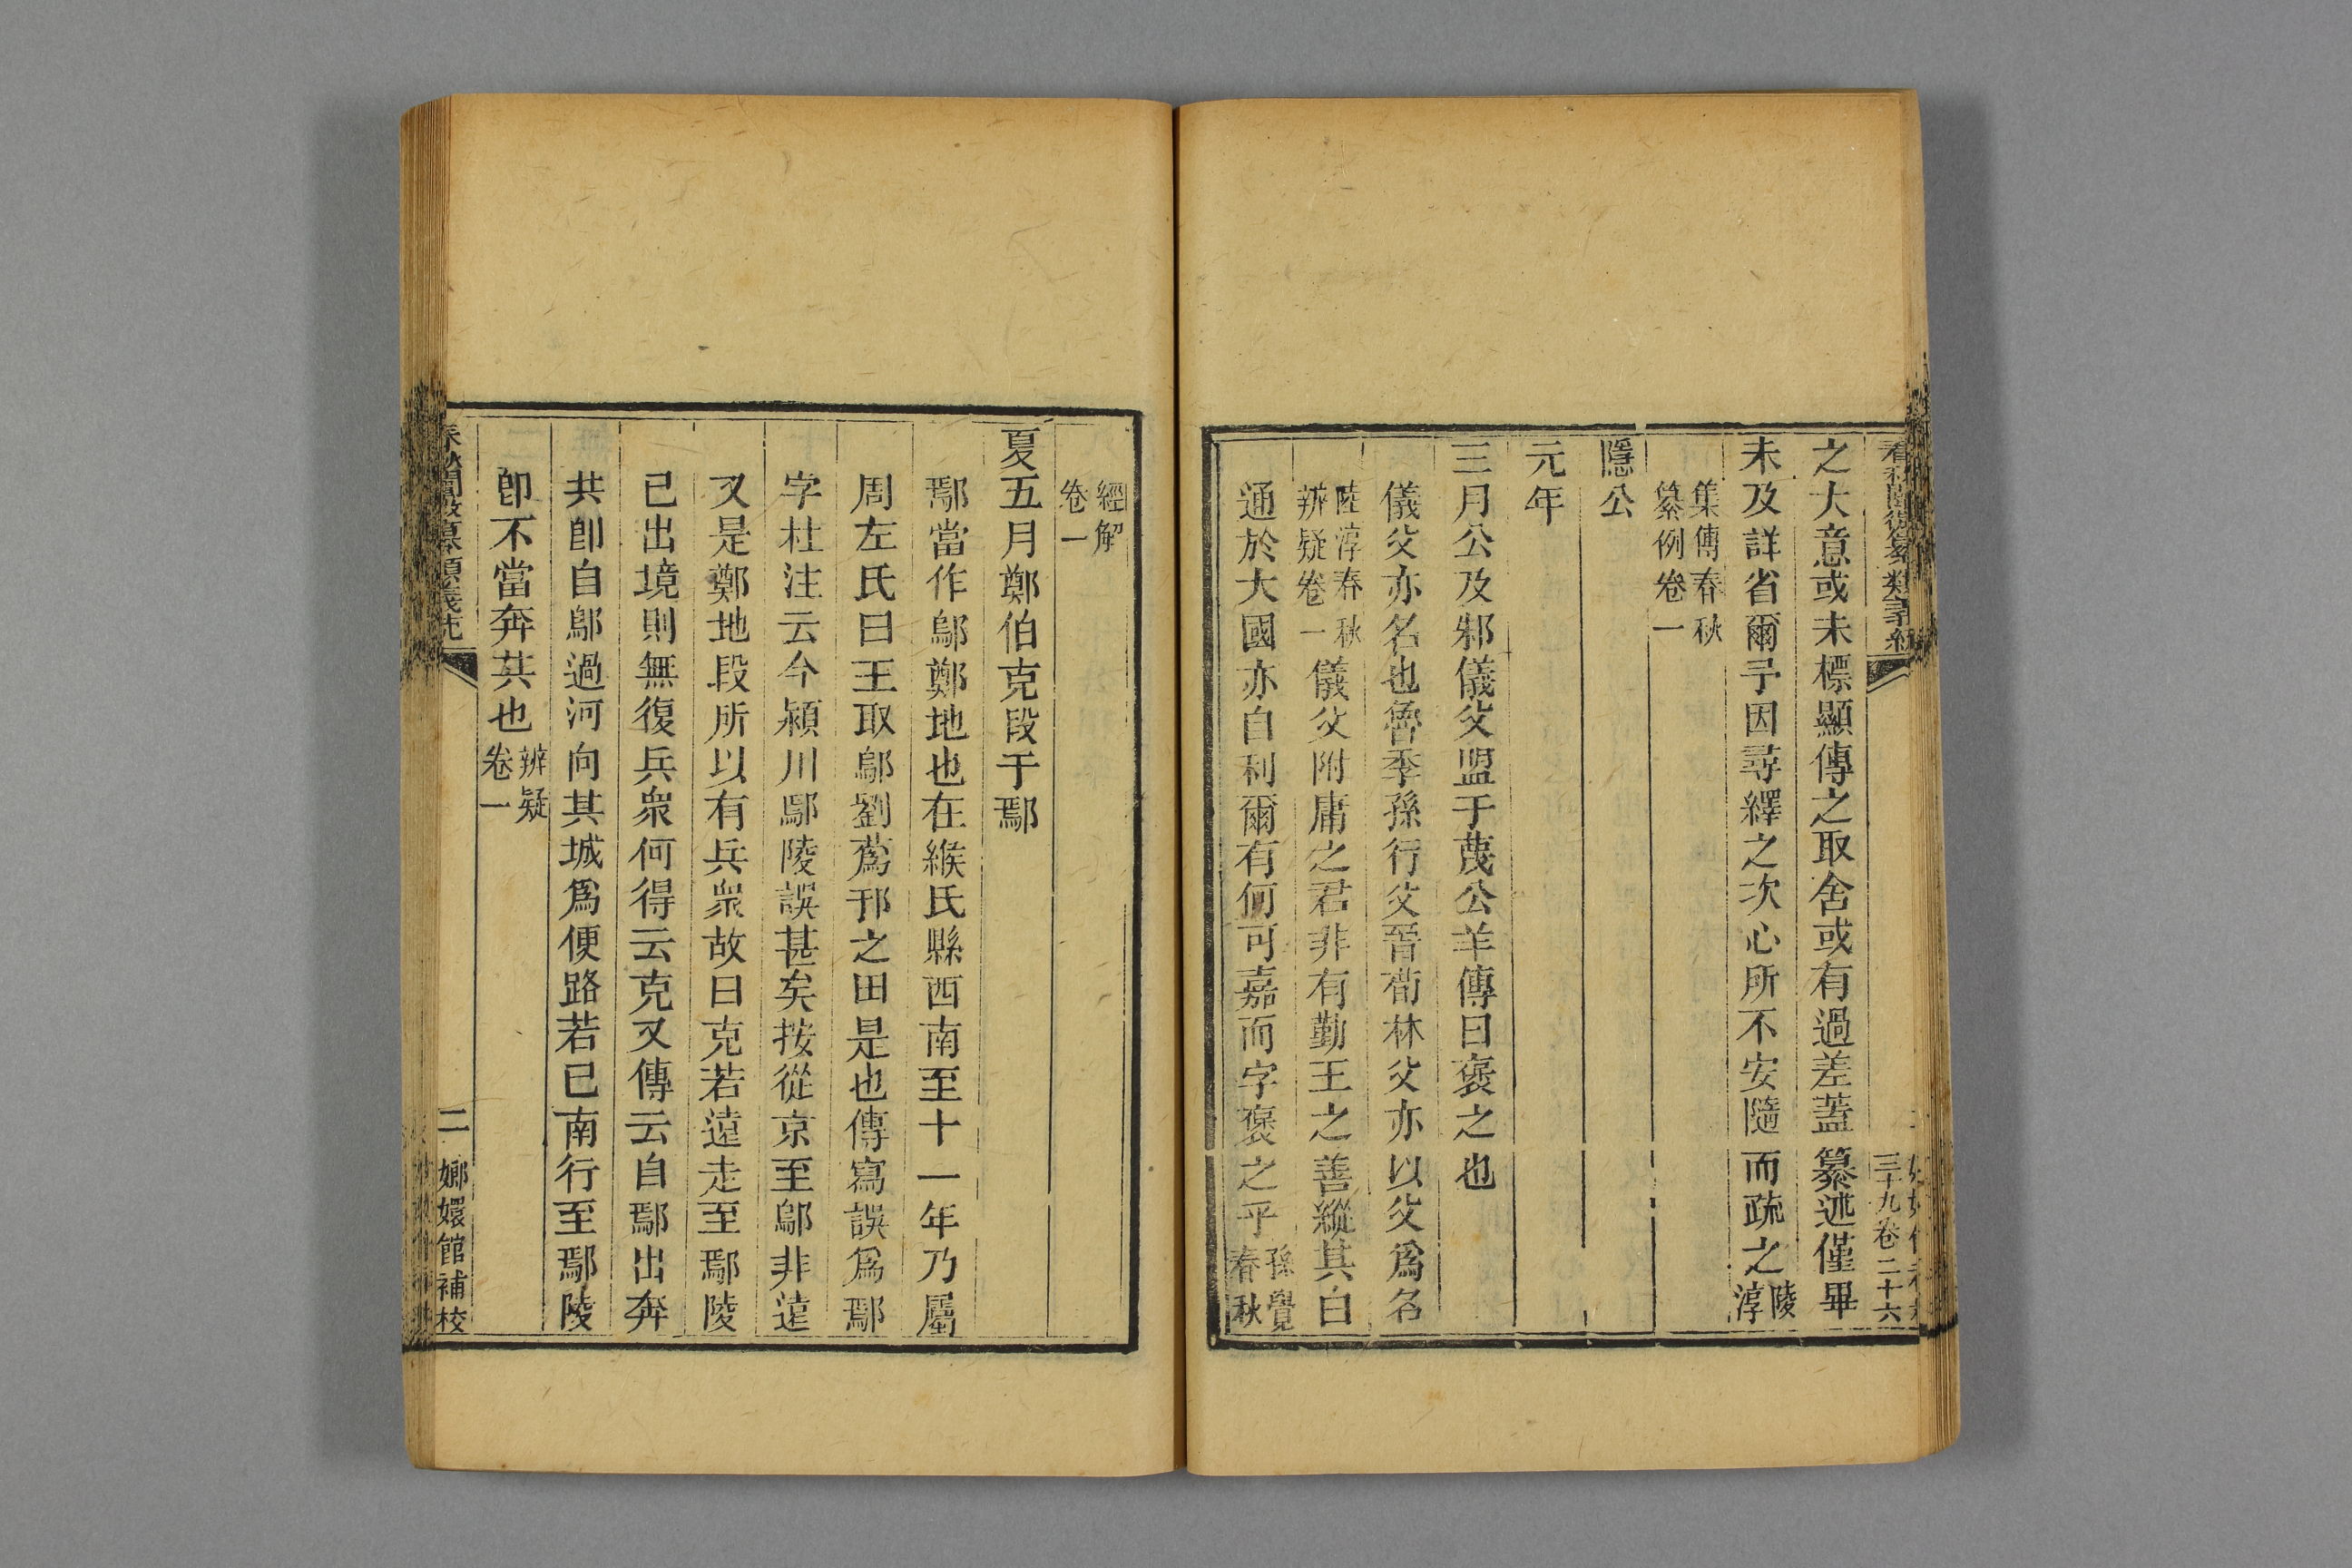 之大意或未標顯傳之取舍或有過差蓋纂述僅畢
未及詳省爾予因尋繹之次心所不安隨而疏之陵淳
集傳春秋
纂例卷一
隱公
元年
三月公及邾儀父盟于蔑公羊傳曰褒之也
儀父亦名也魯季孫行父晉荀林父亦以父爲名
陸淳春秋辨疑卷一儀父附庸之君非有勤王之善縱其白
通於大國亦自利爾有何可嘉而字褒之乎孫覺春秋
經解
卷一
夏五月鄭伯克段于鄢
鄢當作鄔鄭地也在緱氏縣西南至十一年乃屬
周左氏曰王取鄔劉蔿邘之田是也傳寫誤爲鄢
字杜注云今潁川鄢陵誤甚矣按從京至鄔非遠
又是鄭地段所以有兵衆故曰克若遠走至鄢陵
已出境則無復兵衆何得云克又傳云自鄢出奔
共卽自鄔過河向其城爲便路若已南行至鄢陵
卽不當奔共也辨疑卷一
二 嫏嬛館補校
三十九卷二十六